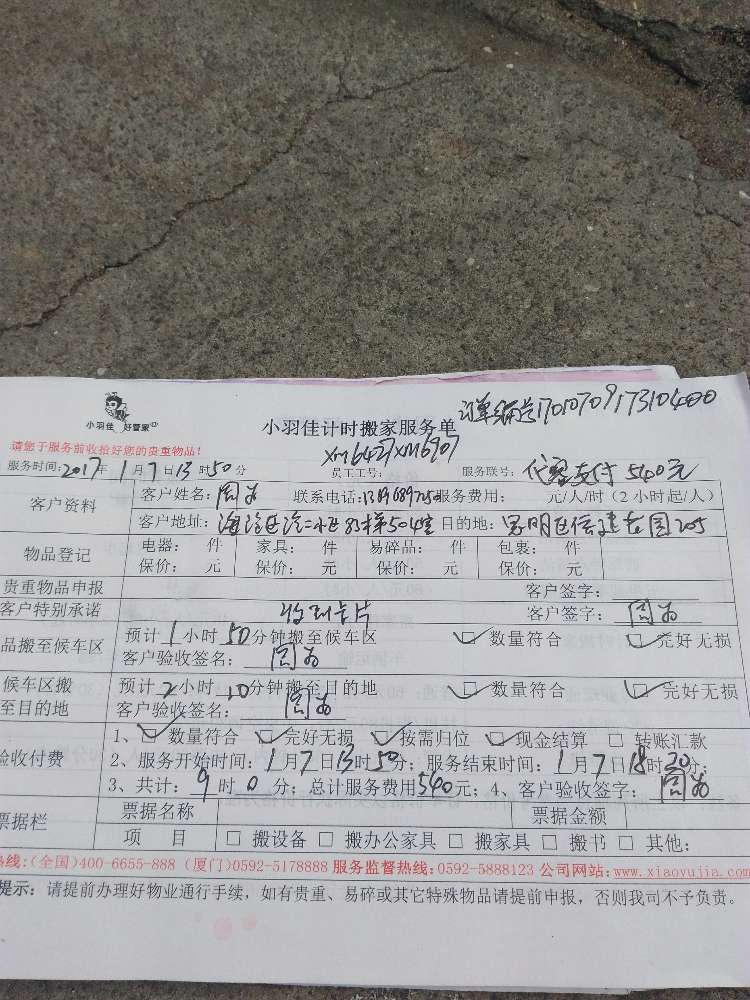 订单编号17010709173104​00
小羽佳 好管家
小羽佳计时搬家服务单
XM6427XM6907
请您于服务前收拾好您的贵重物品!
服务时间:2017年1月7日13时50分 员工工号: 服务联号: 支付540元
客户资料 客户姓名: 联系电话: 服务费用: 元/人/时(2小时起/人)
客户地址: 504室 目的地:
物品登记 电器: 件 家具: 件 易碎品: 件 包裹: 件
保价: 元 保价: 元 保价: 元 保价: 元
贵重物品申报 客户签字:
客户特别承诺 收到卡片 客户签字:
品搬至候车区 预计1小时50分钟搬至候车区 数量符合 完好无损
客户验收签名:
候车区搬至目的地 预计2小时10分钟搬至目的地 数量符合 完好无损
客户验收签名:
验收付费 1、 数量符合 完好无损 按需归位 现金结算 转账汇款
2、服务开始时间:1月7日13时50分; 服务结束时间:1月7日18时20分;
3、共计:9时0分; 总计服务费用540元; 4、客户验收签字:
票据栏 票据名称 票据金额
项 目 搬设备 搬办公家具 搬家具 搬书 其他:
热线:(全国)400-6655-888 (厦门)0592-5178888 服务监督热线:0592-5888123 公司网站:www.xiaoyujia.com
提示:请提前办理好物业通行手续,如有贵重、易碎或其它特殊物品请提前申报,否则我司不予负责。